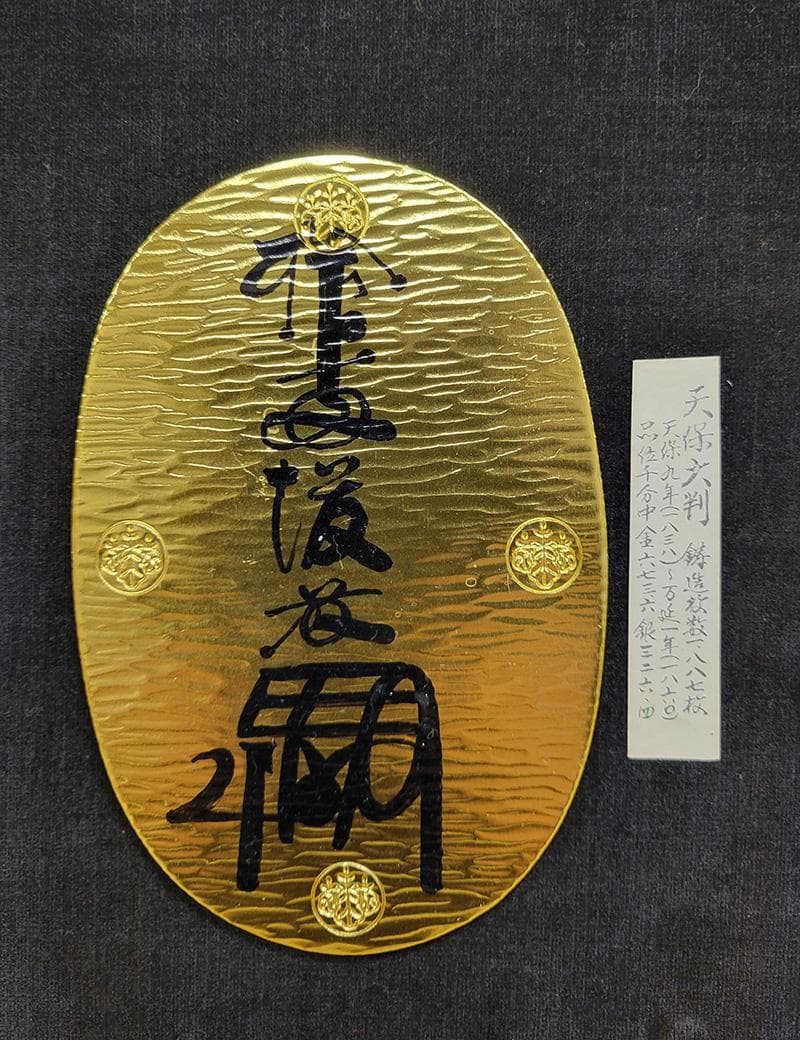 天保大判 鋳造枚数一、八八七枚
天保九年(一八三八)~万延一年(一八六〇)
品位千分中 金六七三・六 銀三二六・四
拾両後藤